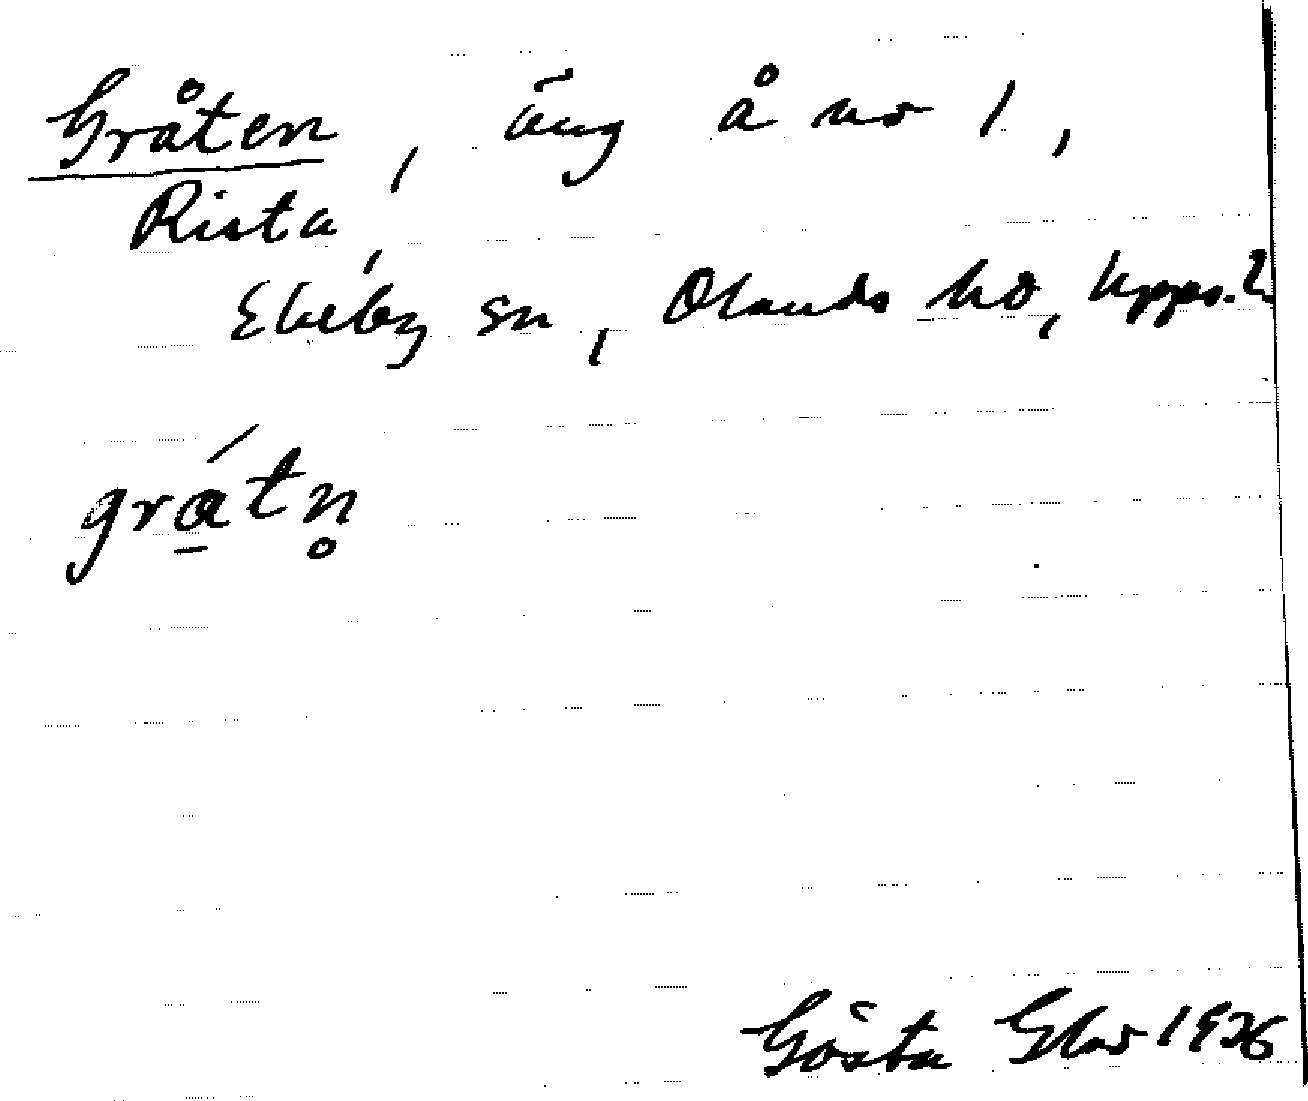 Gråten, äng å nr 1,
Rista,
Ekeby sn, Olands hd, Upps. l.
grátn̥
Gösta Glas 1926